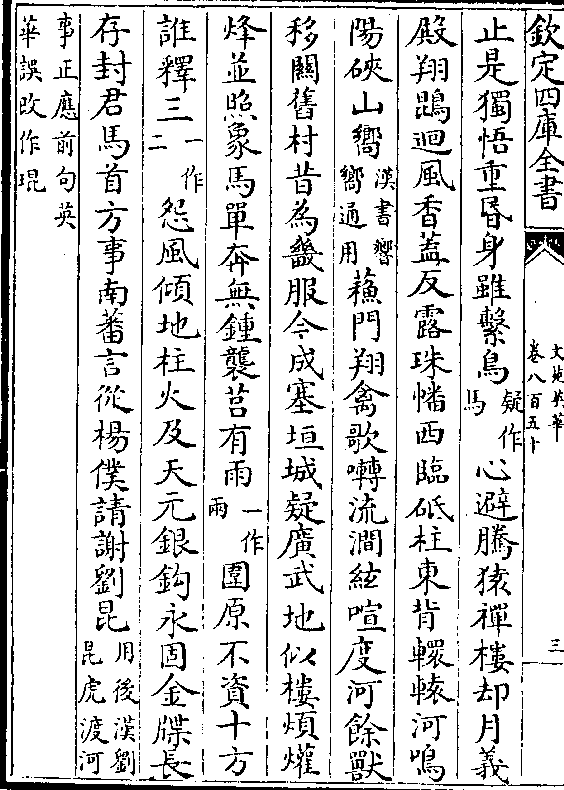 欽定四庫全書
文苑英華
卷八百五十
三
止是獨悟重昏身雖繫鳥疑作馬心避騰猿禪樓却月義
殿翔鵾迴風香蓋反露珠幡西臨砥柱東背轘轅河鳴
陽硤山嚮漢書響嚮通用蘓門翔禽歌囀流澗絃喧度河餘獸
移關舊村昔為畿服今成塞垣城疑廣武地似樓煩爟
烽並照象馬單奔無鍾襲莒有雨一作兩圍原不資十方
誰釋三一作二怨風傾地柱火及天元銀鈎永固金牒長
存封君馬首方事南蕃言從楊僕請謝劉昆用後漢劉昆虎渡河
事正應前句英華誤改作琨